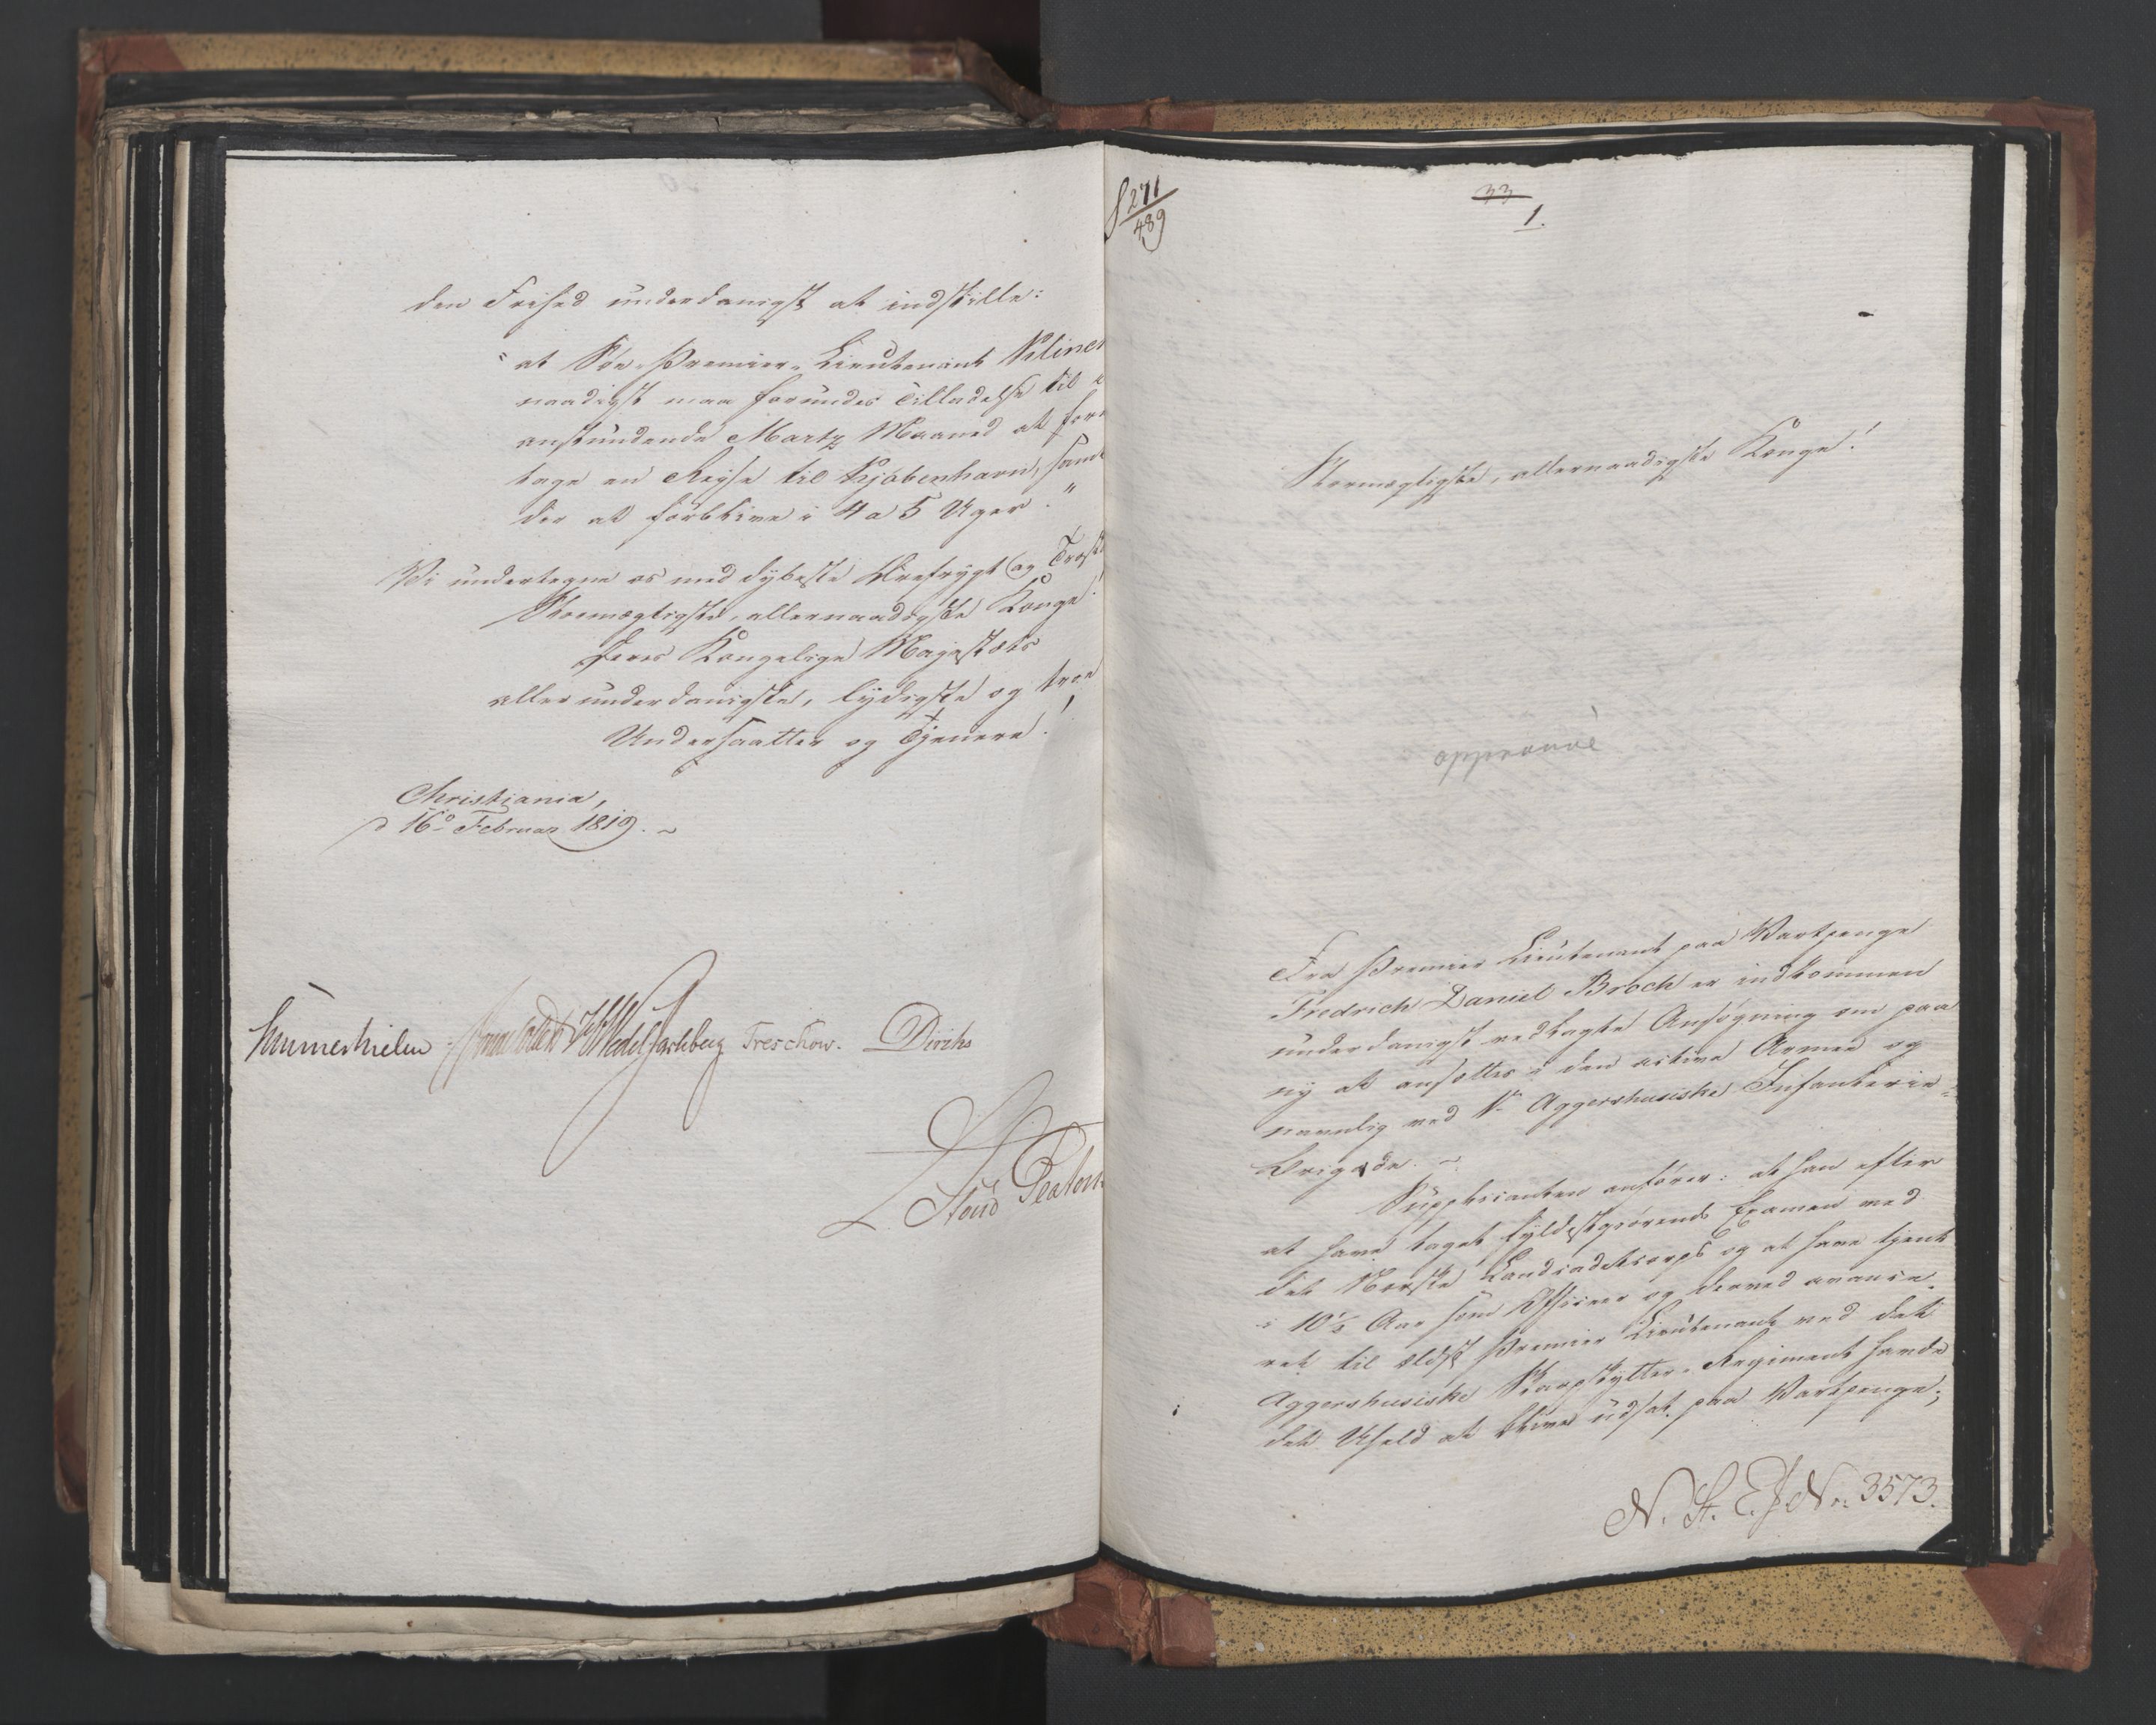 den Frihed underdanigst at indstille:
"at Søe-Premier-Lieutenant Kliner
naadigst maa forundes Tilladelse til i
anstundende Martz Maaned at fore
tage en Reise til Kjøbenhavn, samt
der at forblive i 4 a 5 Uger."
Vi undertegne os med dybeste Ærefrygt og Trosk
Stormægtigste, allernaadigste Konge!
Deres Kongelige Majestæts
allerunderdanigste, lydigste og troe
Undersaatter og Tjenere!
Christiania,
d 16º Februar 1819.
Hammerhielm Sommerfeldt Wedel Jarlsberg Treschow. Diriks
L. Stoud Platou
S 271
489
33
1.
Stormægtigste, allernaadigste Konge!
approuvé
Fra Premier Lieutenant paa Vartpenge
Fredrich Daniel Broch er indkommen
underdanigst vedlagte Ansøgning om paa
ny at ansættes i den active Armee og
navnlig ved Aggershusiske Infanterie-
Brigade.
Supplicanten anfører: at han efter
at have taget fyldestgiørende Examen ved
det Norske Landcadetcorps og at have tjent
i 10½ Aar som Officeer og derved avance-
ret til ældst Premier Lieutenant ved det
Aggershusiske Skarpskytter-Regiment havde
det Uheld at blive udsat paa Vartpenge;
N. St. E. J No. 3573.